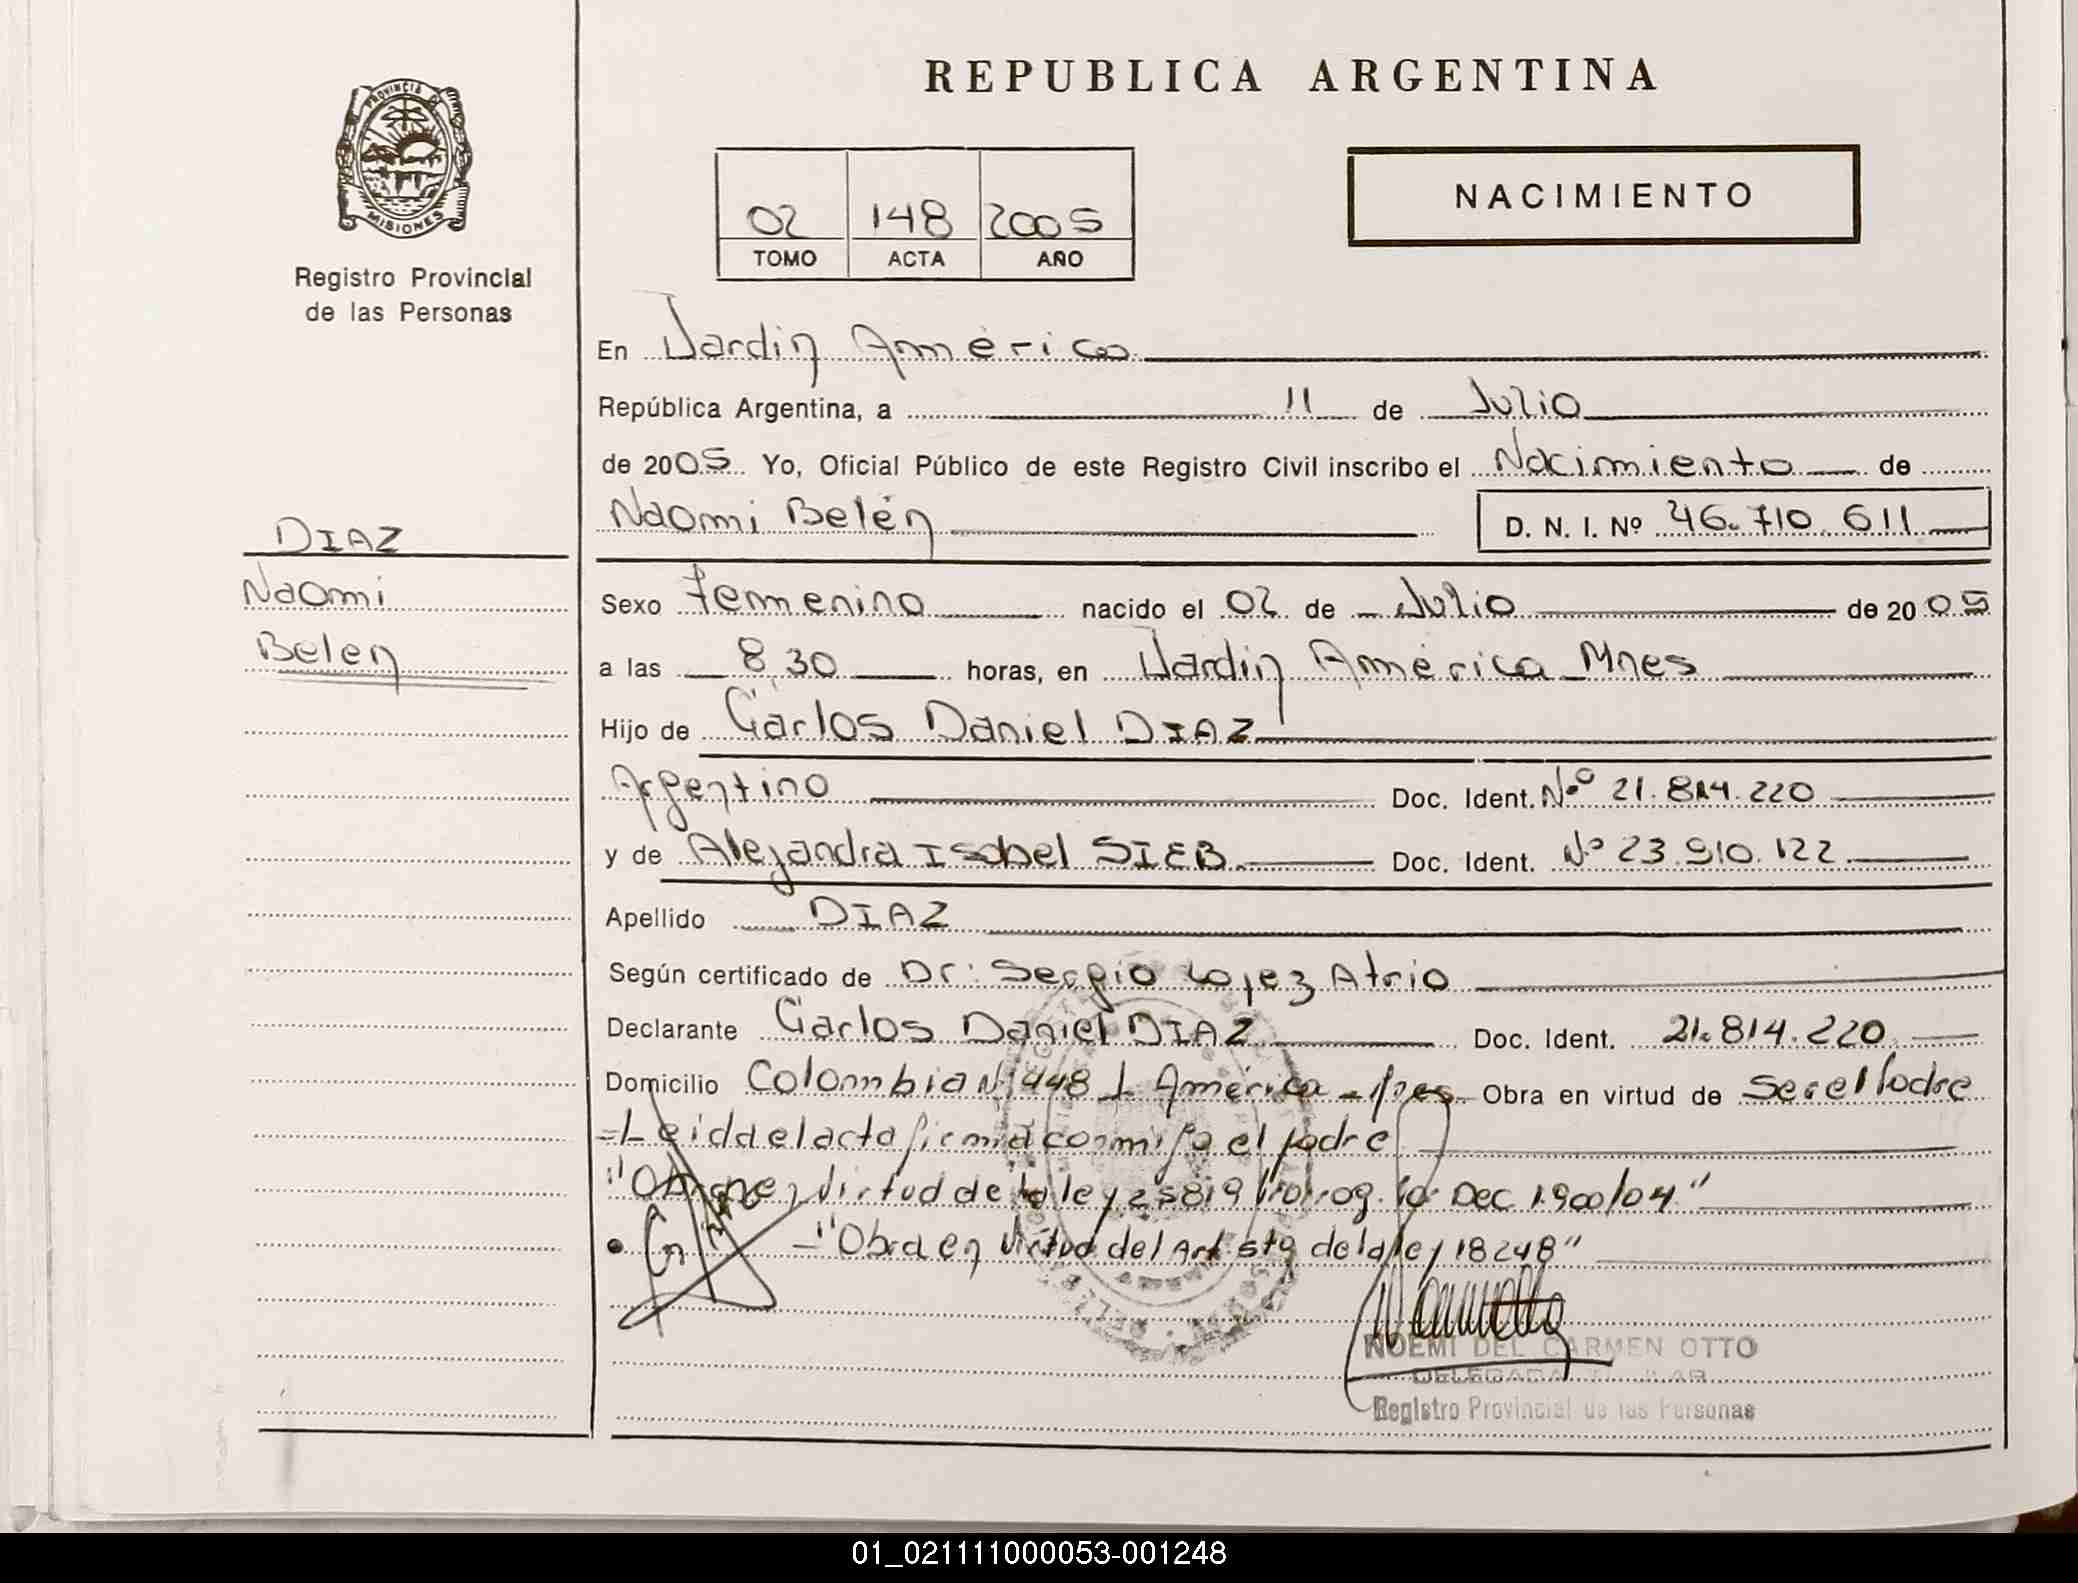 REPUBLICA ARGENTINA
PROVINCIA DE
MISIONES
Registro Provincial
de las Personas
02 148 2005
TOMO ACTA AÑO
NACIMIENTO
En Jardin América
República Argentina, a 11 de Julio
de 2005 Yo, Oficial Público de este Registro Civil inscribo el Nacimiento de
Naomi Belén D. N. I. Nº 46.710.611
DIAZ
Naomi
Belen
Sexo Femenino nacido el 02 de Julio de 2005
a las 8,30 horas, en Jardin América Mnes
Hijo de Carlos Daniel DIAZ
Argentino Doc. Ident. Nº 21.814.220
y de Alejandra Isabel SIEB Doc. Ident. Nº 23.910.122
Apellido DIAZ
Según certificado de Dr: Sergio Lopez Atrio
Declarante Carlos Daniel DIAZ Doc. Ident. 21.814.220
Domicilio Colombia Nº 448 J. América - Mnes Obra en virtud de Ser el Padre
=Leida el acta firma conmigo el padre
"Obra en virtud de la ley 25819 Prorrog. por Dec 1900/04"
-"Obra en virtud del Art. 5to de la ley 18248"
NOEMI DEL CARMEN OTTO
DELEGADA TITULAR
Registro Provincial de las Personas
01_021111000053-001248